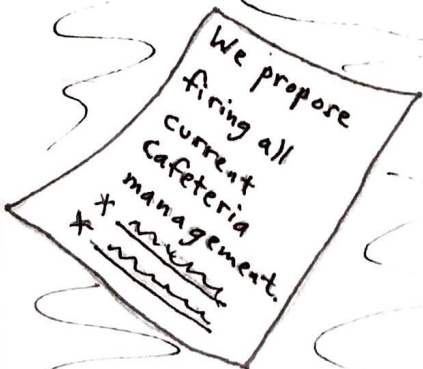 We propose
firing all
current
Cafeteria
management.
*
*